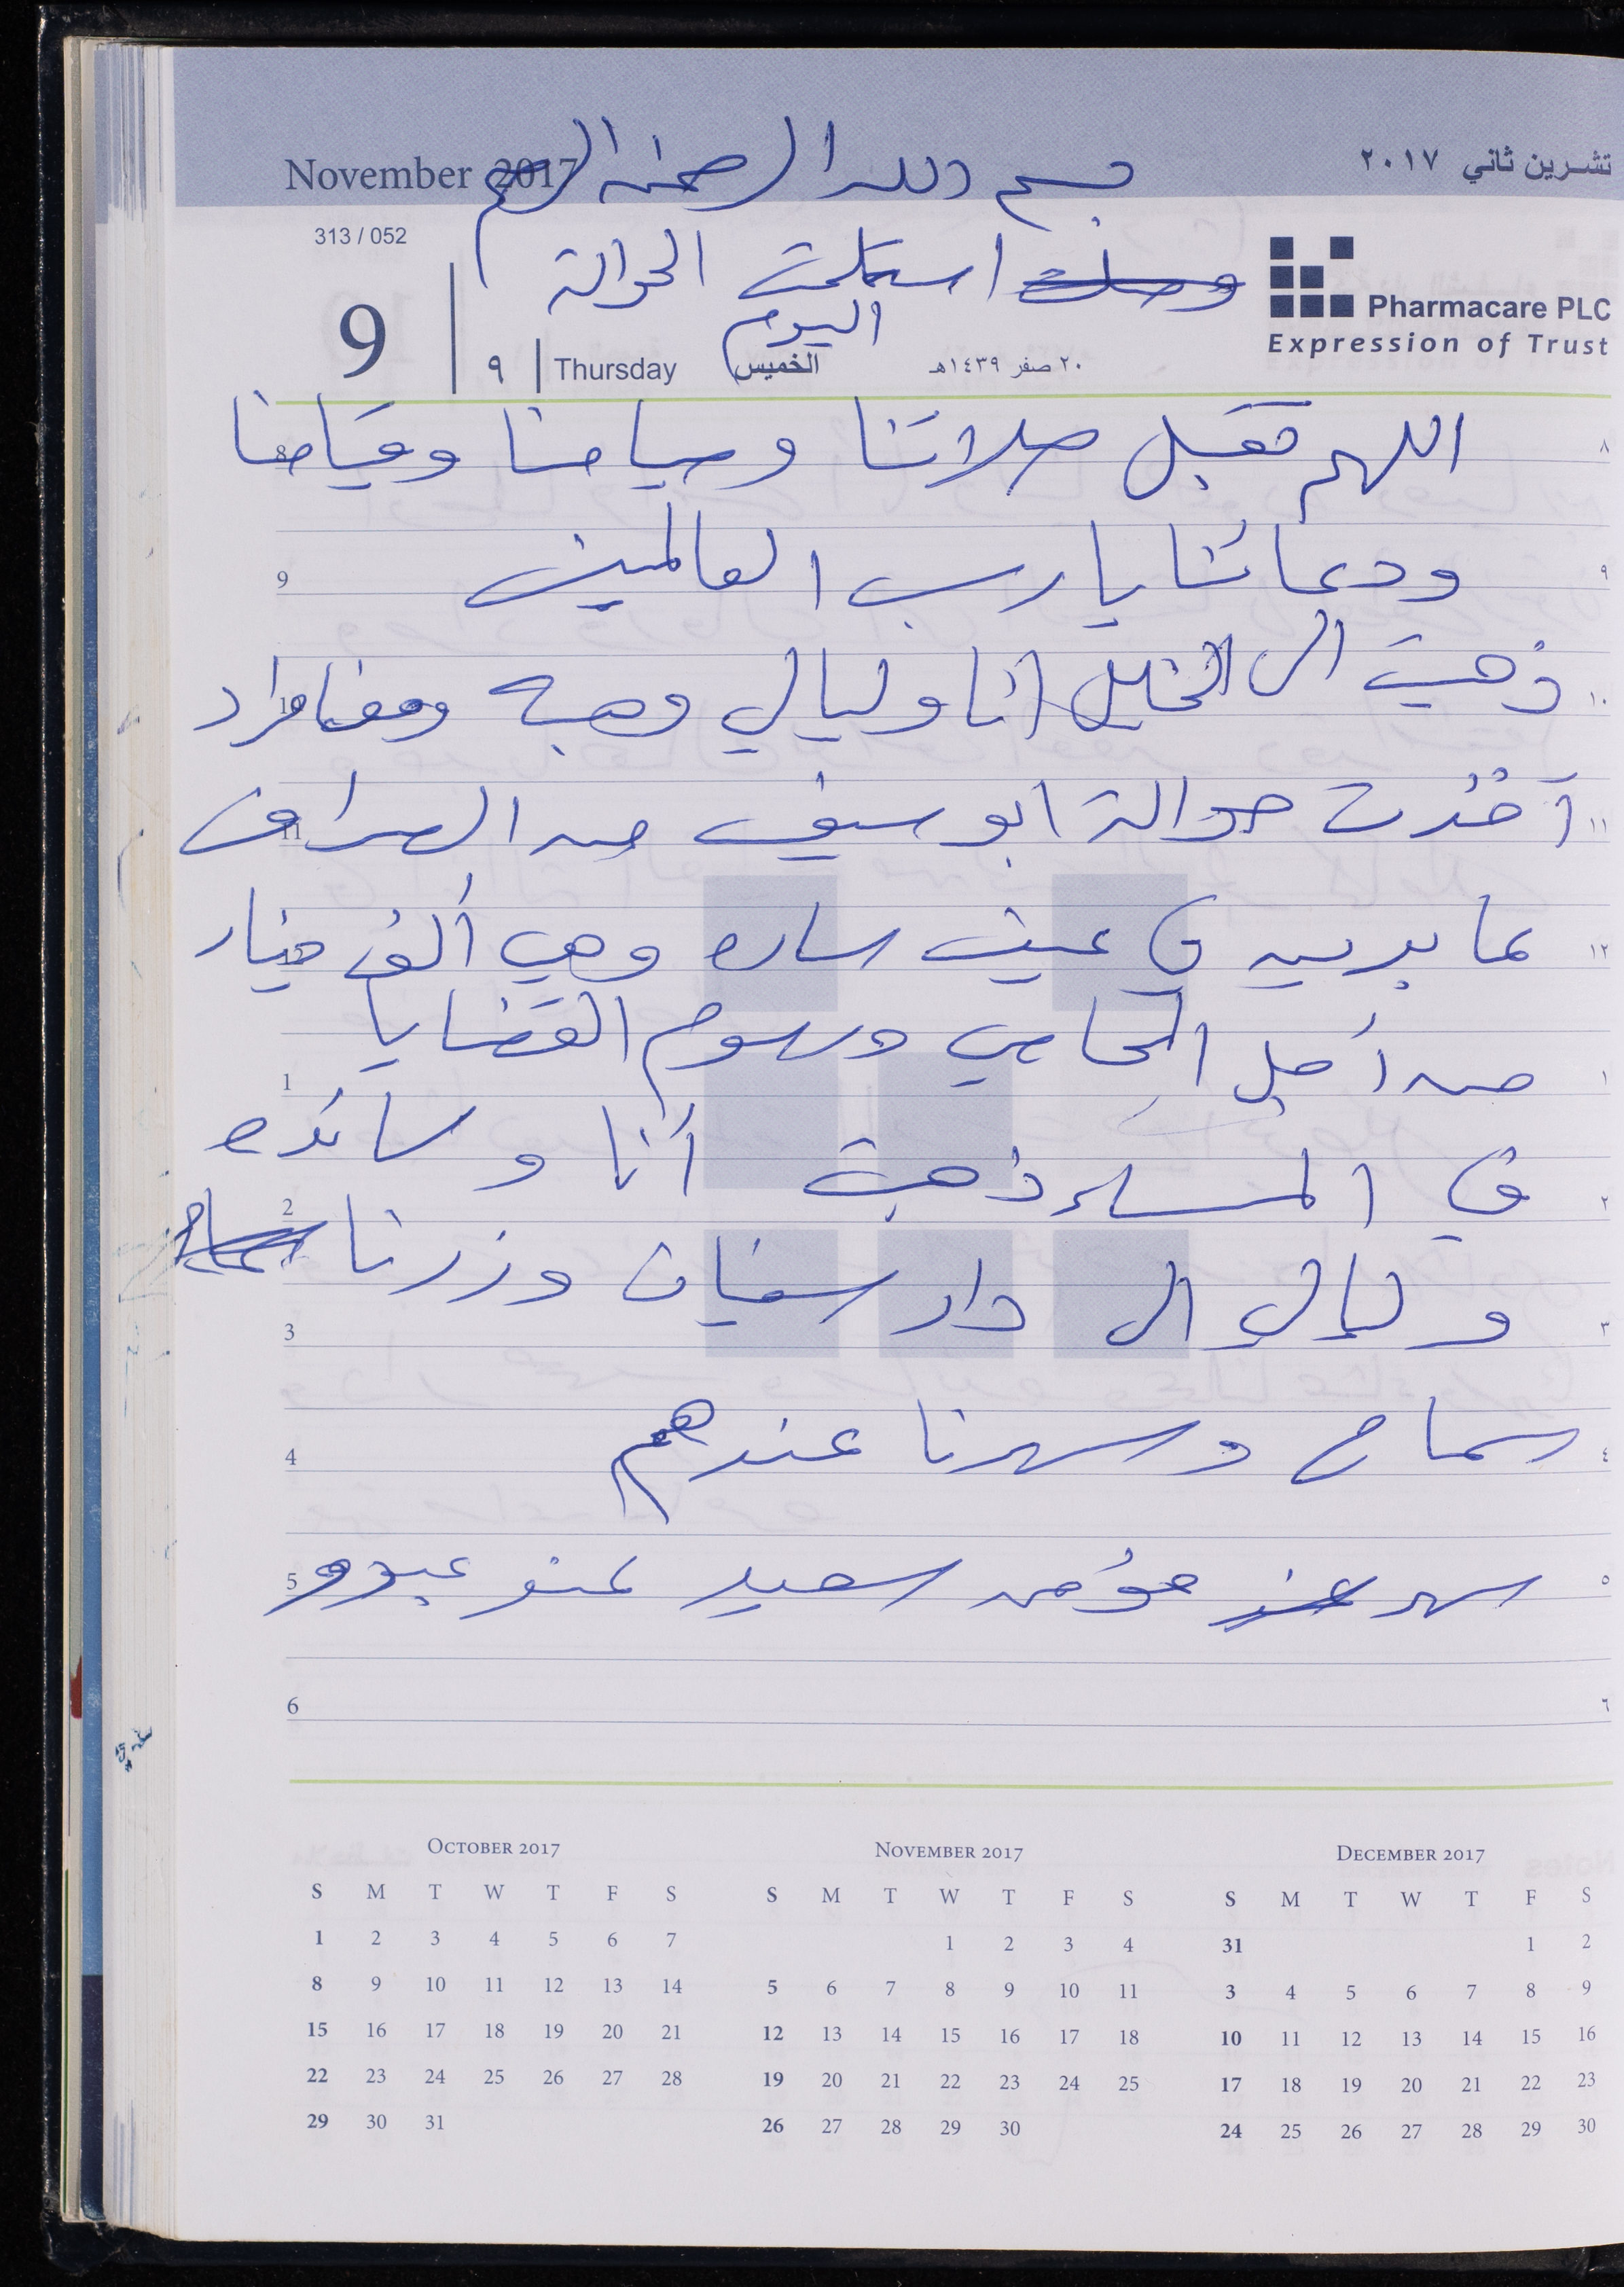 November 2017
تشرين ثاني ٢٠١٧
بسم الله الرحمن الرحيم
313 / 052
وصلت استلمت الحوالة
اليوم
Pharmacare PLC
Expression of Trust
9 | ٩ | Thursday الخميس ٢٠ صفر ١٤٣٩هـ
8 اللهم تقبل صلاتنا وصيامنا وقيامنا ٨
9 ودعائنا يا رب العالمين ٩
ذهبت الى الخليل أنا وليالي وهبه ومعنا مراد ١٠
11 أخذت حوالة ابو سيف من الصراف ١١
عابدين في عين ساره وهي ألف دينار ١٢
1 من أجل المحامي ورسوم القضايا ١
2 في المساء ذهبت أنا وسائده ٢
3 وليالي الى دار سفيان وزرنا سماح ٣
4 سماح وسهرنا عندهم ٤
5 سهر عند مؤمن سعيد عند عبود ٥
6 ٦
OCTOBER 2017
S M T W T F S
1 2 3 4 5 6 7
8 9 10 11 12 13 14
15 16 17 18 19 20 21
22 23 24 25 26 27 28
29 30 31
NOVEMBER 2017
S M T W T F S
1 2 3 4
5 6 7 8 9 10 11
12 13 14 15 16 17 18
19 20 21 22 23 24 25
26 27 28 29 30
DECEMBER 2017
S M T W T F S
31 1 2
3 4 5 6 7 8 9
10 11 12 13 14 15 16
17 18 19 20 21 22 23
24 25 26 27 28 29 30